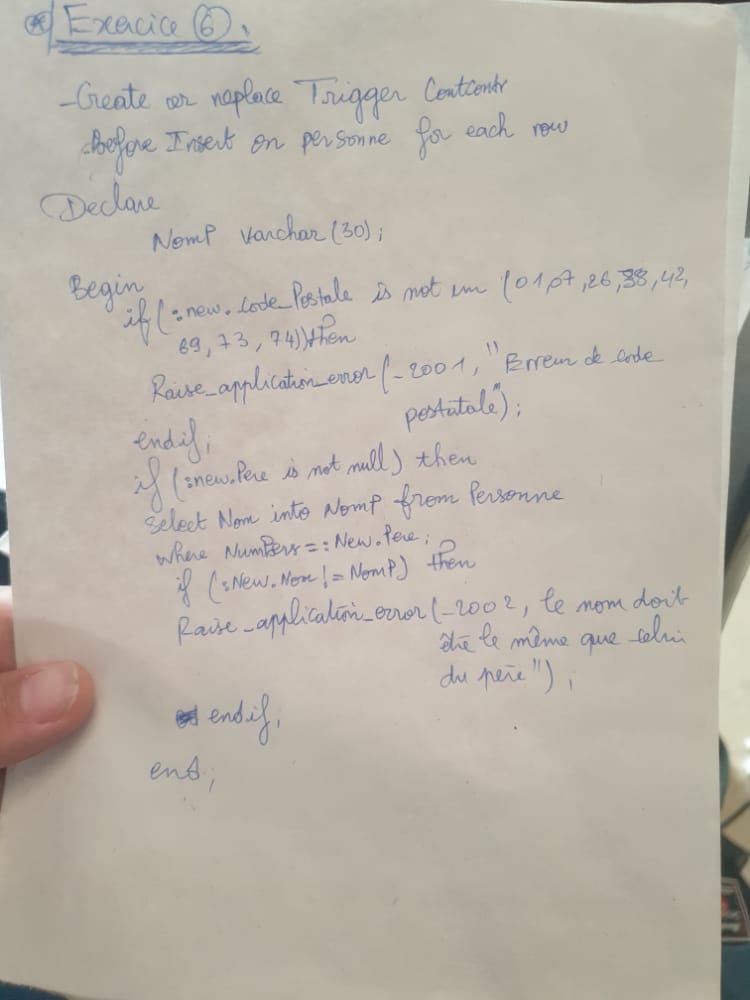 Exercice 6.
- Create or replace Trigger Contcontr
Before Insert on personne for each row
Declare
NomP varchar(30);
Begin
if(:new.code_Postale is not in (01,07,26,38,42,
69,73,74))then
Raise_application_error(-2001, "Erreur de code
postutale");
endif;
if(:new.Pere is not null) then
select Nom into NomP from Personne
where NumPers=:New.Pere;
if (:New.Nom != NomP) then
Raise_application_error(-2002, le nom doit
être le même que celui
du père");
endif;
end;